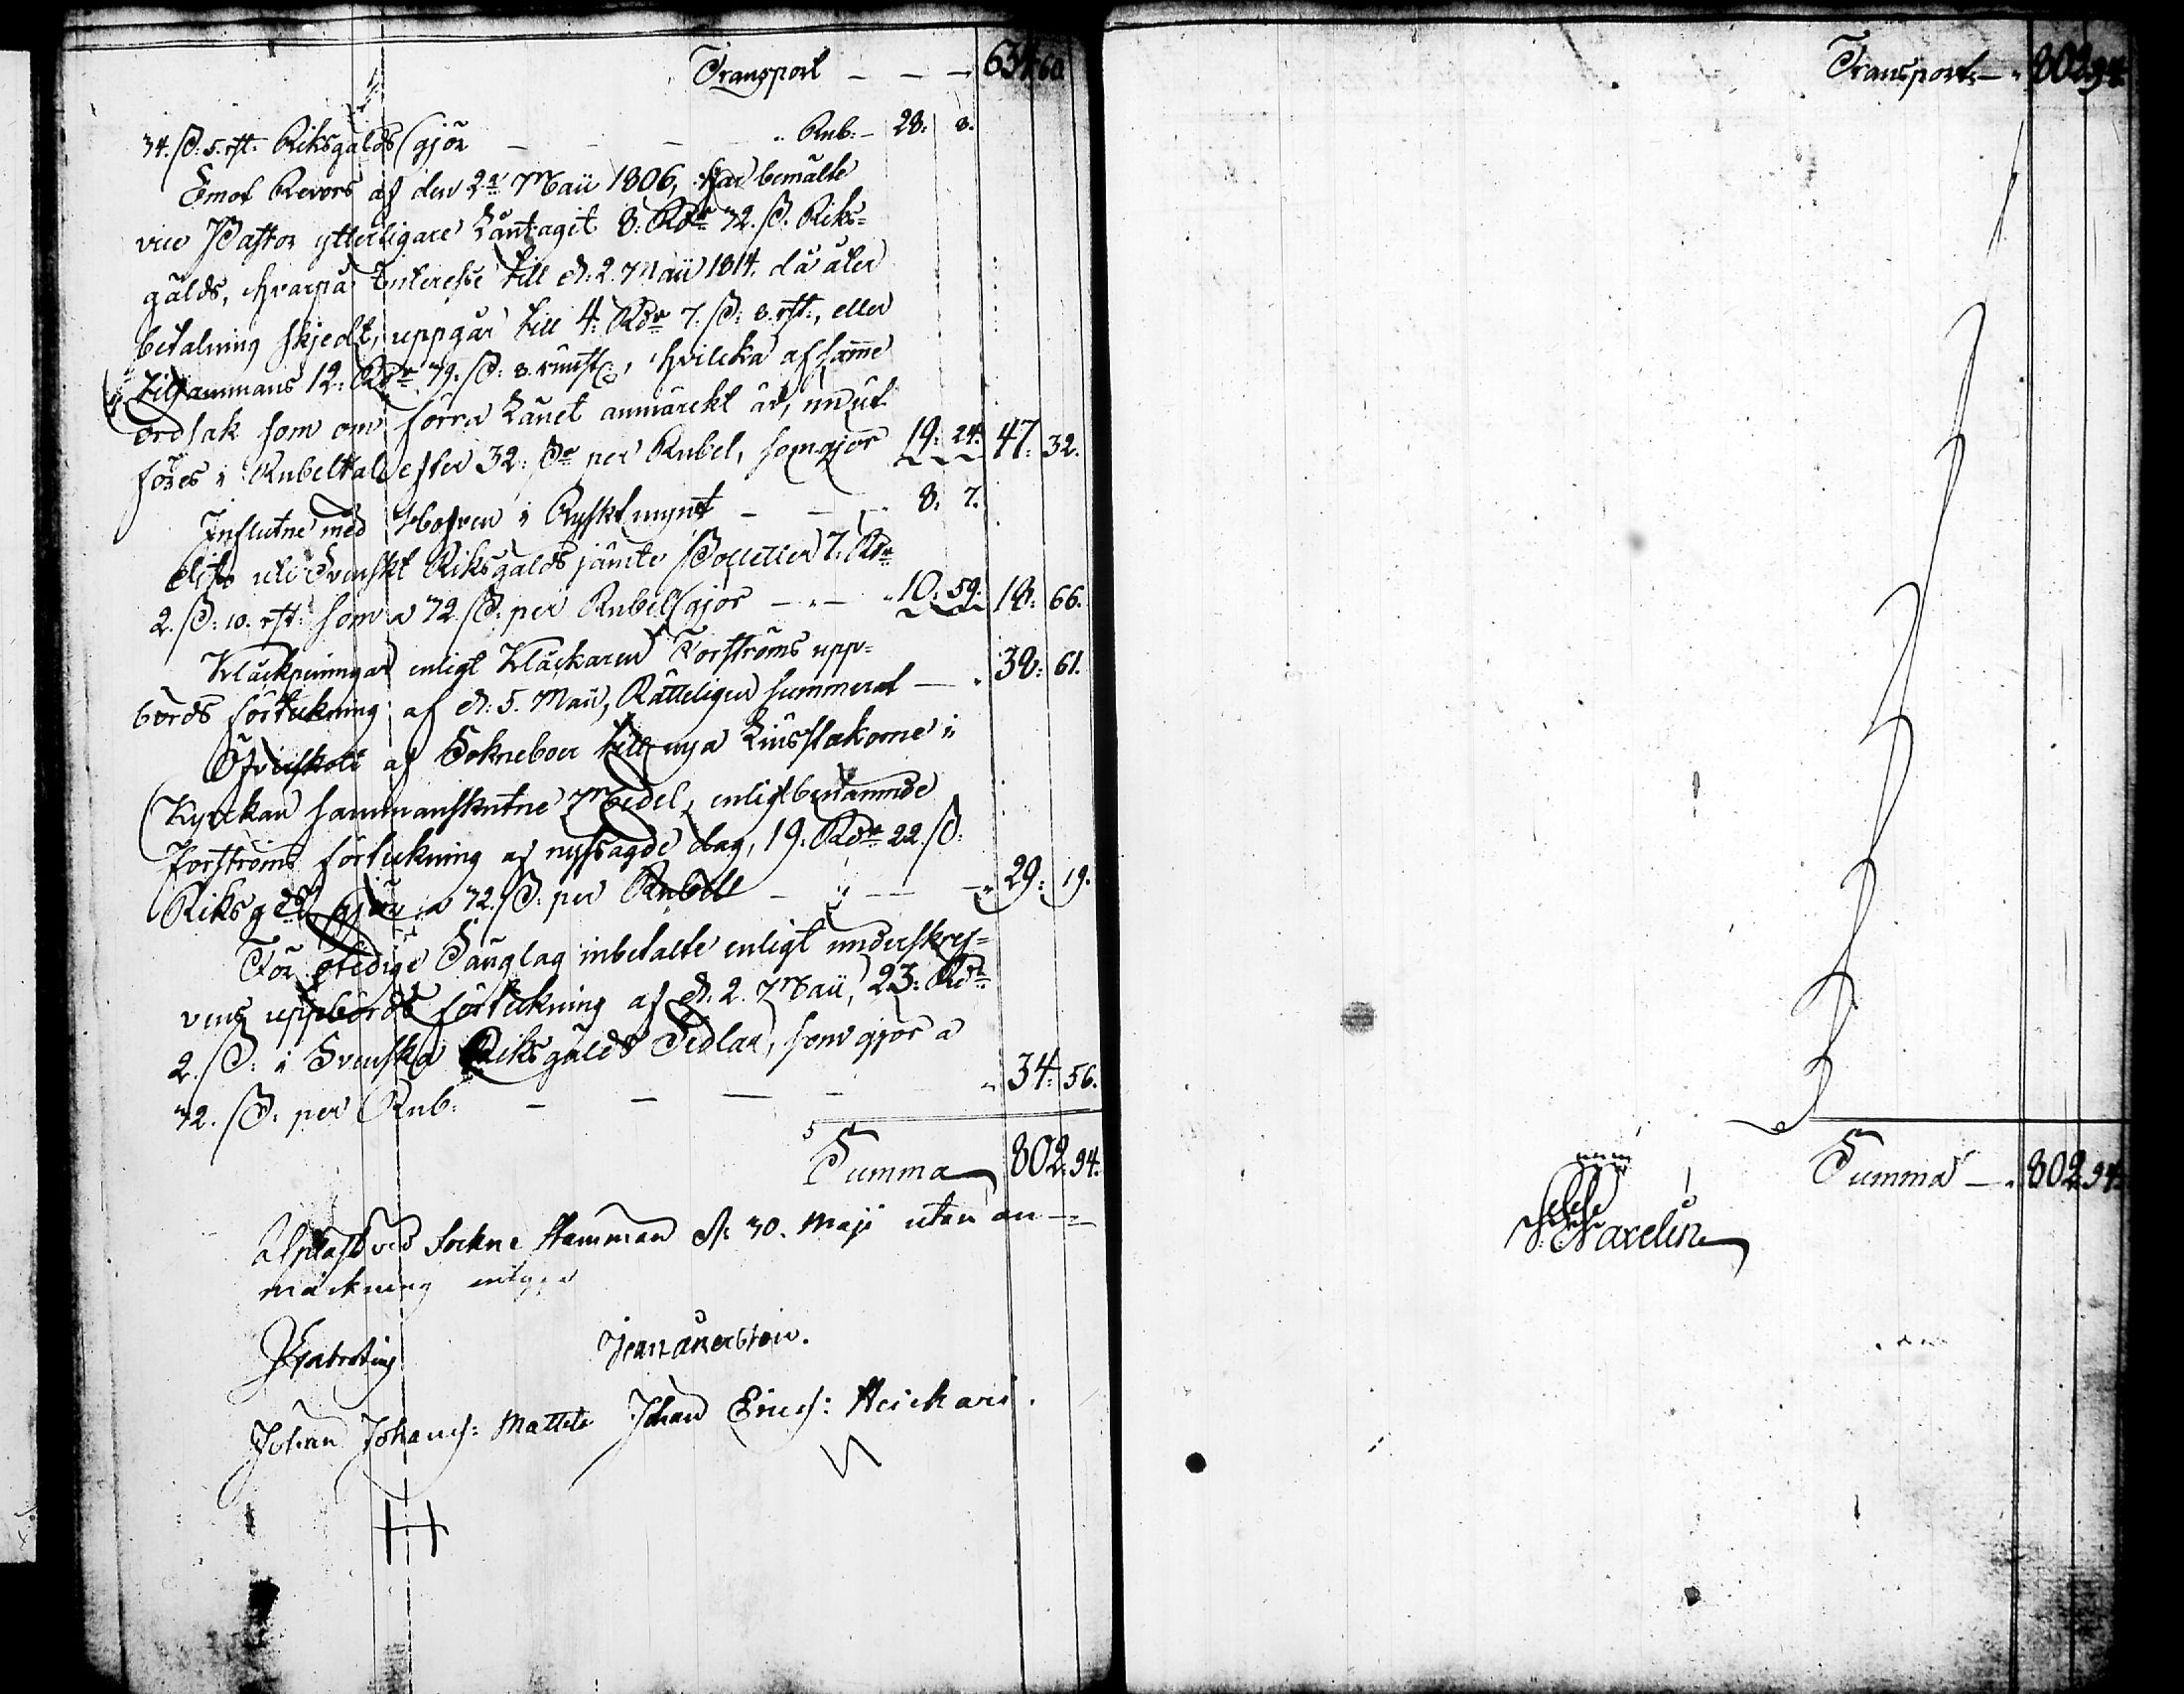 Transport — — — 634 60
34. ß: 5. rst. Riksgälds gjör — — — Rub: — 28: 8.
Emot Revers af den 2a Maii 1806, har bemälte
vice Pastor ytterligare Låntagit 8: Rdr 72. ß. Riks-
gälds, hvarpå Interesse till d: 2. Maii 1814. då åter
betalning skjedt, uppgår till 4: Rdr 7. ß: 8. rst:, eller
tilsammans 12: Rdr 79. ß: 8. runst:, hvilcka af samme
ordsak som om förra Lånet anmärckt är, nu ut-
föres i Rubeltal efter 32: ß per Rubel, som gjör 19: 24. 47: 32.
Influtne med Håfven i Ryskt mynt — — 8. 7.
dito uti Svenskt Riksgälds jämte Polletter 7. Rdr
2. ß: 10. rst: som a 72 ß: per Rubel gjör — " — 10: 59. 18: 66.
Kläckpenningar enligt Kläckaren Forströms upp-
börds förteckning af d: 5. Maii, Rätteligen summerat — 38: 61.
Öfverskott af Sokneboer till nya Liusstakorne i
Kyrckan sammanskutne Medel, enligt benämnde
Forströms förteckning af nyssagde dag, 19. Rdr 22. ß:
Riksgd gjör a 72. ß: per Rubel — — — 29: 19.
För städige Sånglag inbetalte enligt underskref-
vens uppbörds förteckning af d: 2. Maii, 23: Rdr
2. ß: i Svenska Riksgälds Sedlar, som gjör a
72. ß: per Rub: — — — — 34: 56.
Summa 802. 94.
Upläst vid Sockne Stämman d: 30. Maji utan an-
märkning
Johan Johans: Mattila Johan Erics: Heickari.
Transport — 802 94
Summa — 802 94